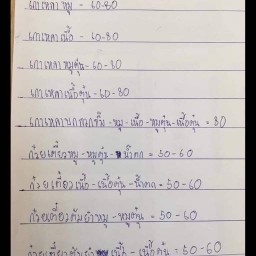 เกาเหลาหมู - 60-80
เกาเหลาเนื้อ - 60-80
เกาเหลาหมูตุ๋น - 60-80
เกาเหลาเนื้อตุ๋น - 60-80
เกาเหลาบกลวกจิ้ม - หมู - เนื้อ - หมูตุ๋น - เนื้อตุ๋น = 80
ก๋วยเตี๋ยวหมู - หมูตุ๋น - น้ำตก = 50-60
ก๋วยเตี๋ยวเนื้อ - เนื้อตุ๋น - น้ำตก = 50-60
ก๋วยเตี๋ยวต้มยำหมู - หมูตุ๋น = 50-60
ก๋วยเตี๋ยวต้มยำ เนื้อ - เนื้อตุ๋น = 50-60